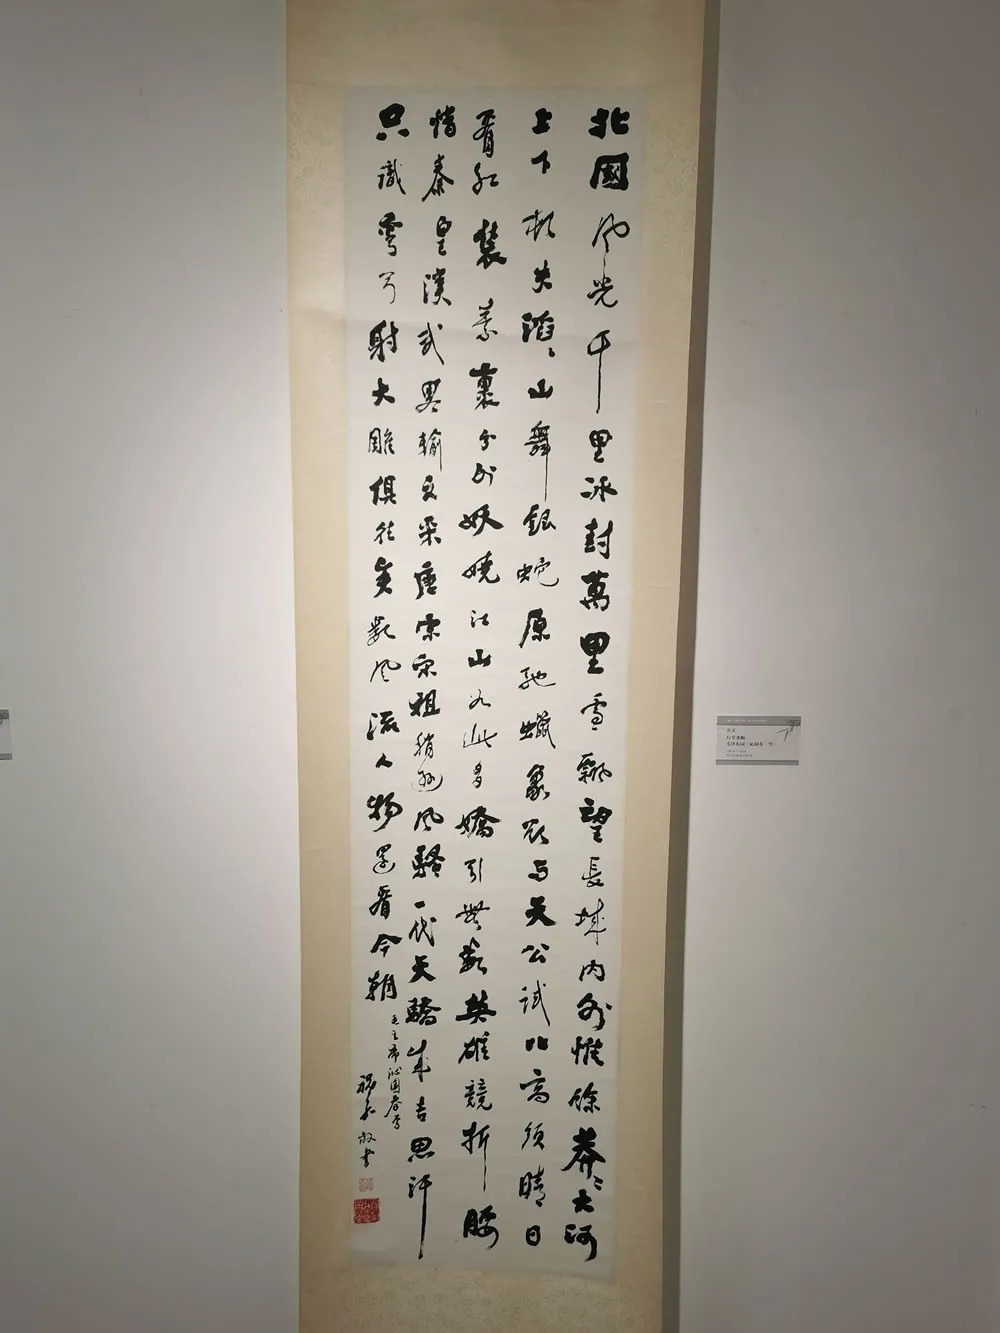 北國風光千里冰封萬里雪飄望長城內外惟餘莽〻大河
上下頓失滔〻山舞銀蛇原馳蠟象欲与天公試比高須晴日
看紅裝素裹分外妖嬈江山如此多嬌引無數英雄競折腰
惜秦皇漢武畧輸文采唐宗宋祖稍遜風騷一代天驕成吉思汗
只識彎弓射大雕俱往矣數風流人物還看今朝
毛主席沁園春雪
書
毛泽东词《沁园春·雪》